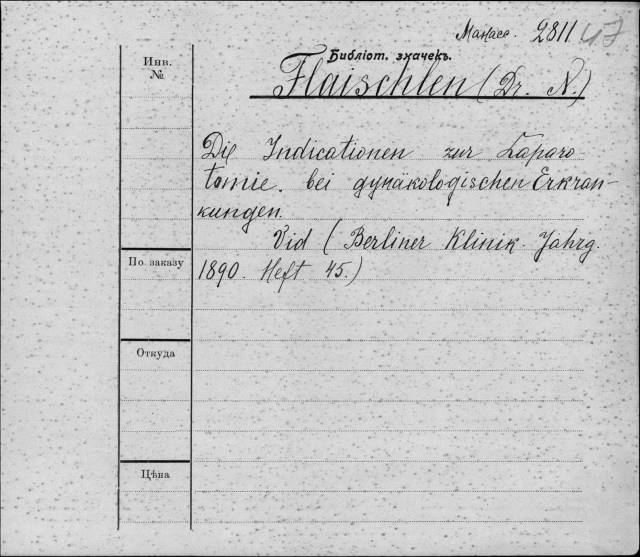 Манасс. 2811 47
Библіот. значекъ.
Flaischlen (Dr. N.)
Инв.
№
Die Indicationen zur Laparo
tomie. bei gynäkologischen Erkran-
kungen.
Vid (Berliner Klinik. Jahrg.
1890. Heft 45.)
По заказу
Откуда
Цѣна